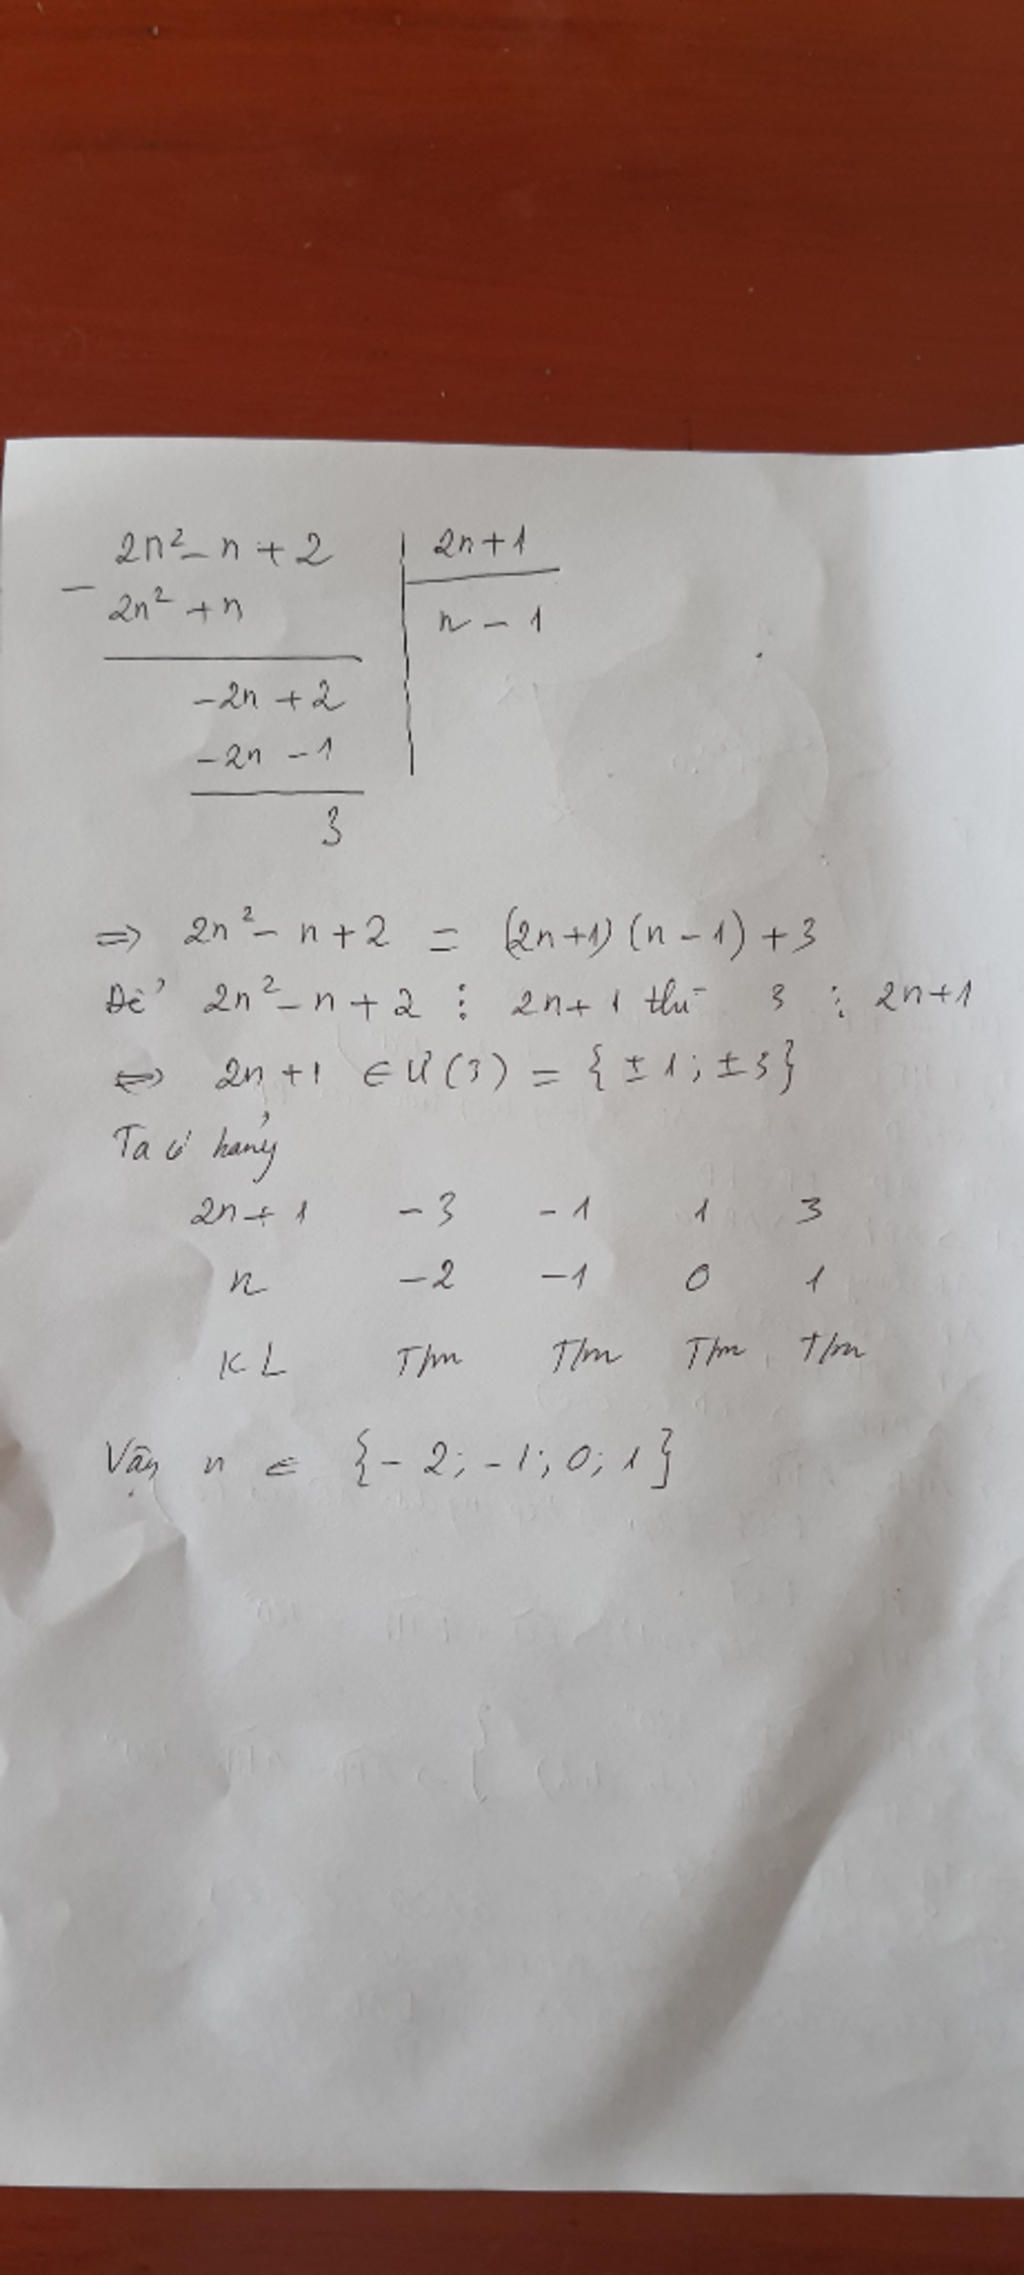 2n² - n + 2 | 2n + 1
- 2n² + n | n - 1
-2n + 2
-2n - 1
3
=> 2n² - n + 2 = (2n+1)(n-1) + 3
Để 2n² - n + 2 ⋮ 2n + 1 thì 3 ⋮ 2n+1
<=> 2n + 1 ∈ Ư(3) = {±1; ±3}
Ta có bảng
2n + 1 -3 -1 1 3
n -2 -1 0 1
KL T/m T/m T/m T/m
Vậy n ∈ {-2; -1; 0; 1}